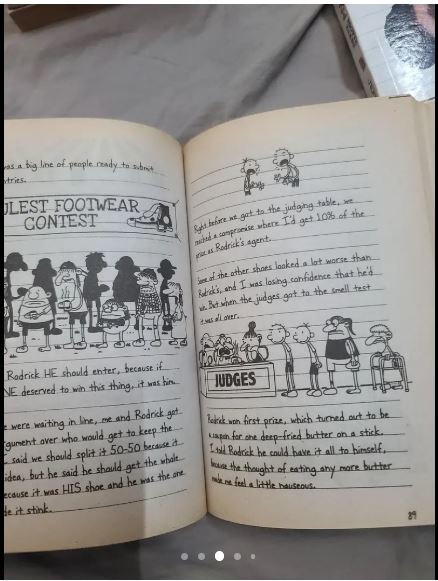 was a big line of people ready to submit
tries.
LEST FOOTWEAR
CONTEST
Rodrick HE should enter, because if
NE deserved to win this thing, it was him.
were waiting in line, me and Rodrick got
gument over who would get to keep the
said we should split it 50-50 because it
idea, but he said he should get the whole
ecause it was HIS shoe and he was the one
de it stink.
Right before we got to the judging table, we
reached a compromise where I'd get 10% of the
prize as Rodrick's agent.
Some of the other shoes looked a lot worse than
Rodrick's, and I was losing confidence that he'd
win. But when the judges got to the smell test
it was all over.
JUDGES
Rodrick won first prize, which turned out to be
a coupon for one deep-fried butter on a stick.
I told Rodrick he could have it all to himself,
because the thought of eating any more butter
made me feel a little nauseous.
89